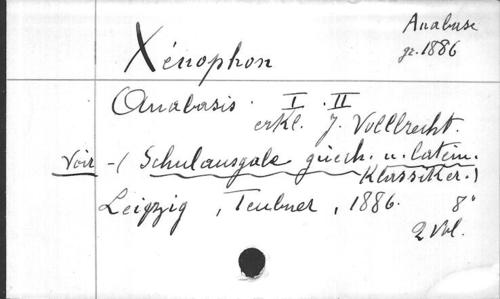 Anabase
gr. 1886
Xénophon
Anabasis. I. II
erkl. J. Vollbrecht.
Voir -( Schulausgabe griech. u. latein.
Klassiker.)
Leipzig, Teubner, 1886. 8°
2 Vol.